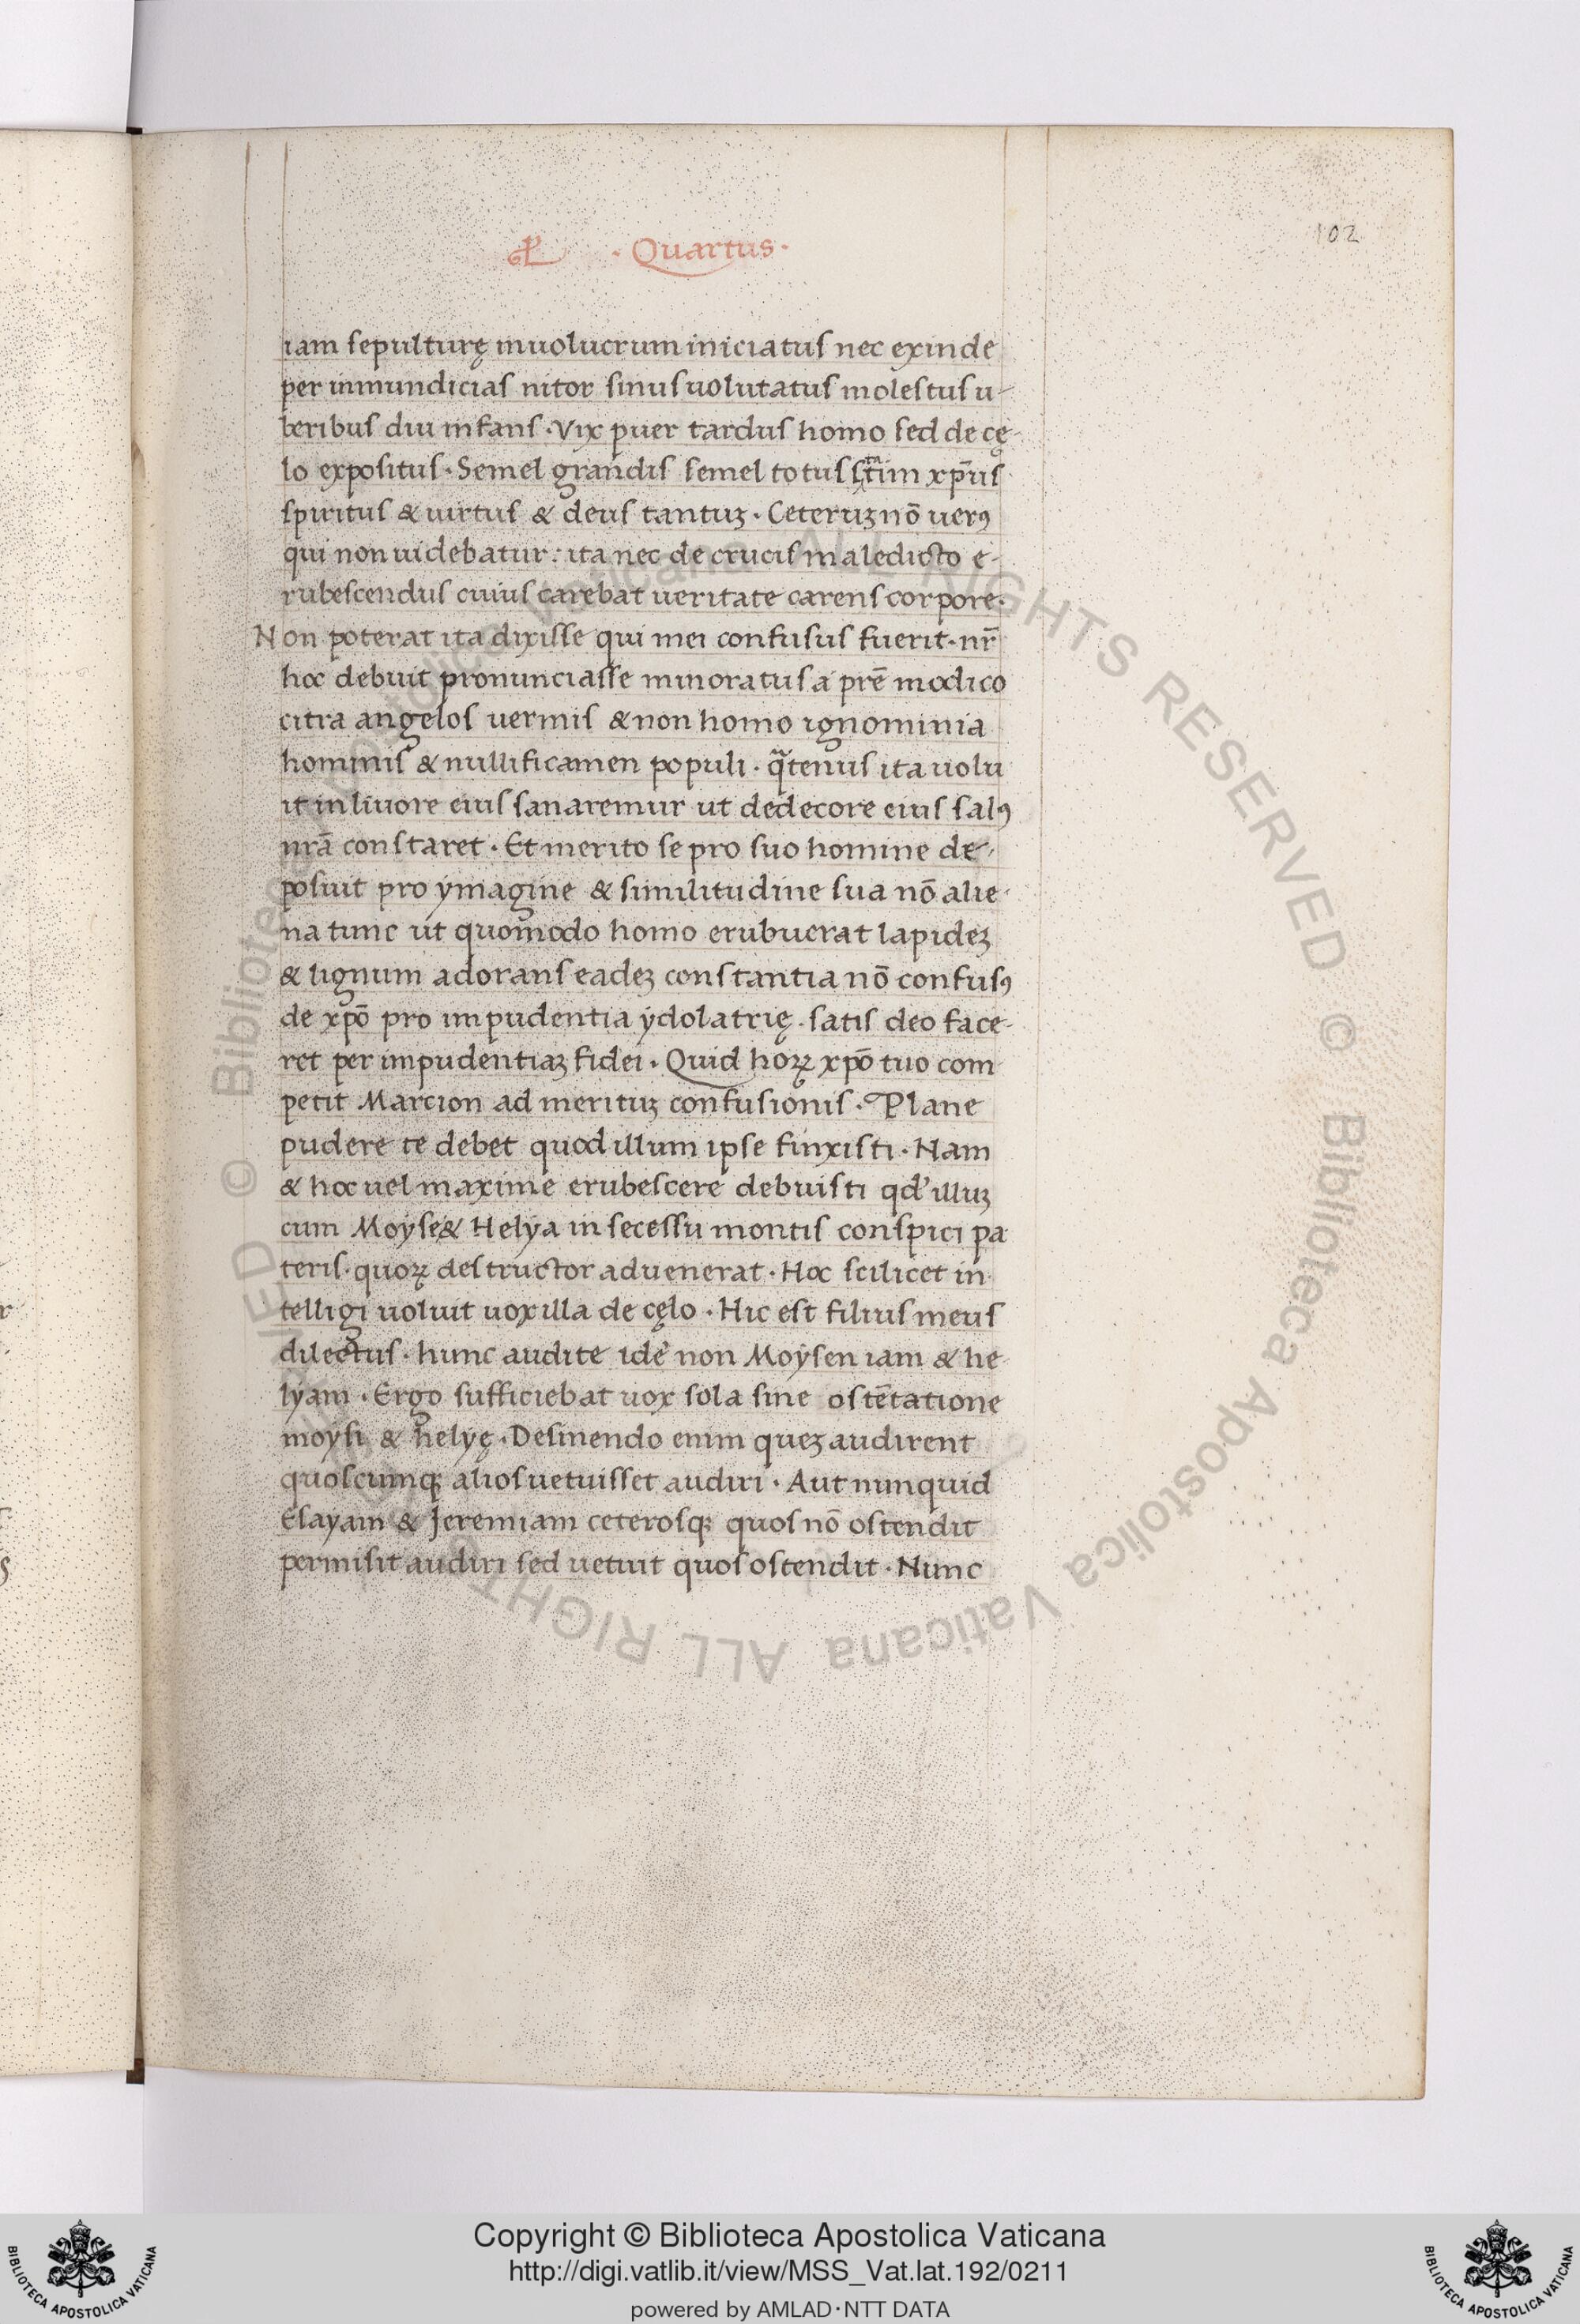 · Quartus ·
102
iam sepulturę inuolucrum iniciatus nec exinde
per inmundicias nitor sinus uolutatus molestus u-
beribus diu infans · Vix puer tardus homo sed de cę-
lo expositus · Semel grandis semel totus statim xp̄us
spiritus & uirtus & deus tantuꝫ · Ceteruꝫ nō uerꝯ
qui non uidebatur: ita nec de crucis maledicto e-
rubescendus cuius carebat ueritate carens corpore ·
Non poterat ita dixisse qui mei confusus fuerit · nr̄
hoc debuit pronunciasse minoratus a prē modico
citra angelos uermis & non homo ignominia
hominis & nullificamen populi · qᵃtenus ita uolu
it in liuore eius sanaremur ut dedecore eius salꝯ
nrā constaret · Et merito se pro suo homine de-
posuit pro ymagine & similitudine sua nō alie-
na tunc ut quomodo homo erubuerat lapideꝫ
& lignum adorans eadeꝫ constantia nō confusꝯ
de xpō pro impudentia ydolatrię · satis deo face-
ret per impudentiaꝫ fidei · Quid hoꝝ xpō tuo com
petit Marcion ad merituꝫ confusionis · Plane
pudere te debet quod illum ipse finxisti · Nam
& hoc uel maxime erubescere debuisti qd' illuꝫ
cum Moyse & Helya in secessu montis conspici pa
teris · quoꝝ destructor aduenerat · Hoc scilicet in-
telligi uoluit uox illa de cęlo · Hic est filius meus
dilectus · hunc audite idē non Moysen iam & he-
lyam · Ergo sufficiebat uox sola sine ostētatione
moysi & helyę · Desinendo enim queꝫ audirent
quoscumqꝫ alios uetuisset audiri · Aut nunquid
Esayam & Jeremiam ceterosqꝫ quos nō ostendit
permisit audiri sed uetuit quos ostendit · Nunc
© Biblioteca Apostolica Vaticana ALL RIGHTS RESERVED © Biblioteca Apostolica Vaticana ALL RIGHTS RESERVED
Copyright © Biblioteca Apostolica Vaticana
http://digi.vatlib.it/view/MSS_Vat.lat.192/0211
powered by AMLAD · NTT DATA
BIBLIOTECA APOSTOLICA VATICANA
BIBLIOTECA APOSTOLICA VATICANA